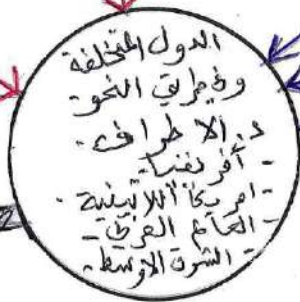 الدول المتخلفة
وفي طريق النمو.
د. الاطراف.
- أفريقيا.
- امريكا اللاتينية.
- العالم العربي -
- الشرق الاوسط.